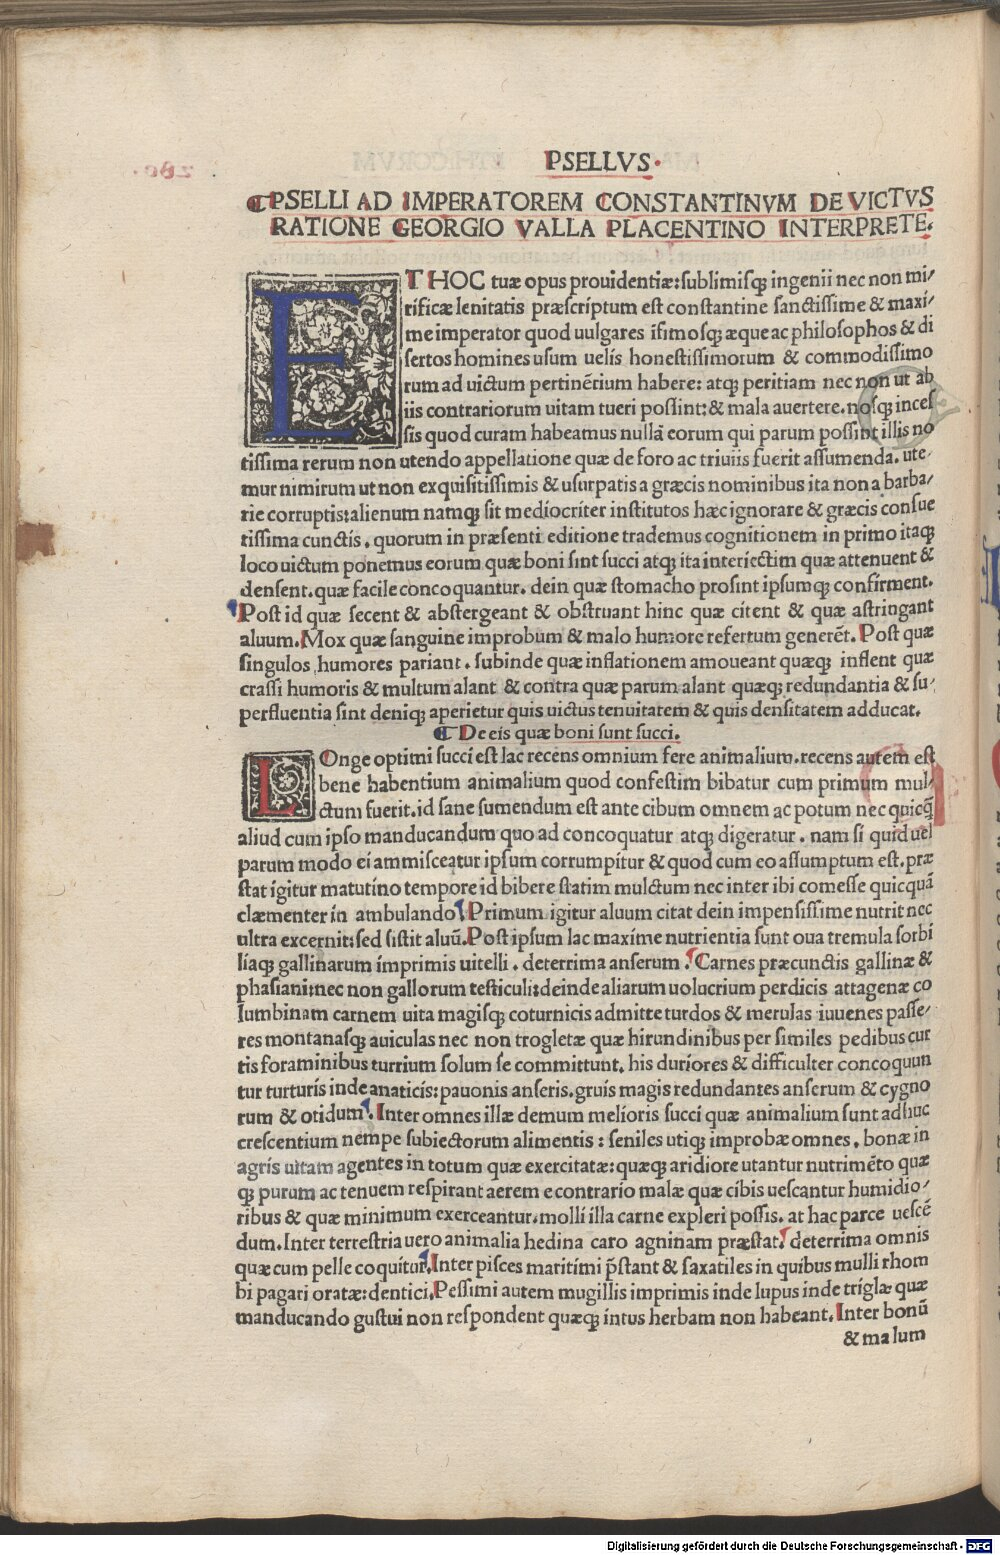 PSELLVS.
¶PSELLI AD IMPERATOREM CONSTANTINVM DE VICTVS
RATIONE GEORGIO VALLA PLACENTINO INTERPRETE.
ET HOC tuæ opus prouidentiæ:sublimisqꝫ ingenii nec non mi/
rificæ lenitatis præscriptum est constantine sanctissime & maxi/
me imperator quod uulgares ifimosqꝫ æque ac philosophos & di
sertos homines usum uelis honestissimorum & commodissimo
rum ad uictum pertinẽtium habere: atqꝫ peritiam nec non ut ab
iis contrariorum uitam tueri possint:& mala auertere.nosqꝫ inces
sis quod curam habeamus nullã eorum qui parum possint illis no
tissima rerum non utendo appellatione quæ de foro ac triuiis fuerit assumenda. ute/
mur nimirum ut non exquisitissimis & usurpatis a græcis nominibus ita non a barba/
rie corruptis:alienum namqꝫ sit mediocriter institutos hæc ignorare & græcis consue
tissima cunctis, quorum in præsenti editione trademus cognitionem in primo itaqꝫ
loco uictum ponemus eorum quæ boni sint succi atqꝫ ita interiectim quæ attenuent &
densent. quæ facile concoquantur. dein quæ stomacho prosint ipsumqꝫ confirment.
Post id quæ secent & abstergeant & obstruant hinc quæ citent & quæ astringant
aluum. Mox quæ sanguine improbum & malo humore refertum generẽt. Post quæ
singulos humores pariant. subinde quæ inflationem amoueant quæqꝫ inflent quæ
crassi humoris & multum alant & contra quæ parum alant quæqꝫ redundantia & su/
perfluentia sint deniqꝫ aperietur quis uictus tenuitatem & quis densitatem adducat.
¶ De eis quæ boni sunt succi.
LOnge optimi succi est lac recens omnium fere animalium.recens autem est
bene habentium animalium quod confestim bibatur cum primum mul/
ctum fuerit.id sane sumendum est ante cibum omnem ac potum nec quicq̃
aliud cum ipso manducandum quo ad concoquatur atqꝫ digeratur. nam si quid uel
parum modo ei ammisceatur ipsum corrumpitur & quod cum eo assumptum est.præ
stat igitur matutino tempore id bibere statim mulctum nec inter ibi comesse quicquã
clæmenter in ambulando. Primum igitur aluum citat dein impensissime nutrit nec
ultra excernit:sed sistit aluũ.Post ipsum lac maxime nutrientia sunt oua tremula sorbi
liaqꝫ gallinarum imprimis uitelli. deterrima anserum. Carnes præcunctis gallinæ &
phasiani:nec non gallorum testiculi:deinde aliarum uolucrium perdicis attagenæ co
lumbinam carnem uita magisqꝫ coturnicis admitte turdos & merulas iuuenes passe/
res montanasqꝫ auiculas nec non trogletæ quæ hirundinibus per similes pedibus cur
tis foraminibus turrium solum se committunt, his duriores & difficulter concoquun
tur turturis inde anaticis:pauonis anseris.gruis magis redundantes anserum & cygno
rum & otidum. Inter omnes illæ demum melioris succi quæ animalium sunt adhuc
crescentium nempe subiectorum alimentis : seniles utiqꝫ improbæ omnes, bonæ in
agris uitam agentes in totum quæ exercitatæ:quæqꝫ aridiore utantur nutrimẽto quæ
qꝫ purum ac tenuem respirant aerem e contrario malæ quæ cibis uescantur humidio/
ribus & quæ minimum exerceantur.molli illa carne expleri possis. at hac parce uescẽ
dum.Inter terrestria uero animalia hedina caro agninam præstat. deterrima omnis
quæ cum pelle coquitur. Inter pisces maritimi p̃stant & saxatiles in quibus mulli rhom
bi pagari oratæ:dentici.Pessimi autem mugillis imprimis inde lupus inde triglæ quæ
manducando gustui non respondent quæqꝫ intus herbam non habeant. Inter bonũ
& malum
Digitalisierung gefördert durch die Deutsche Forschungsgemeinschaft - DFG